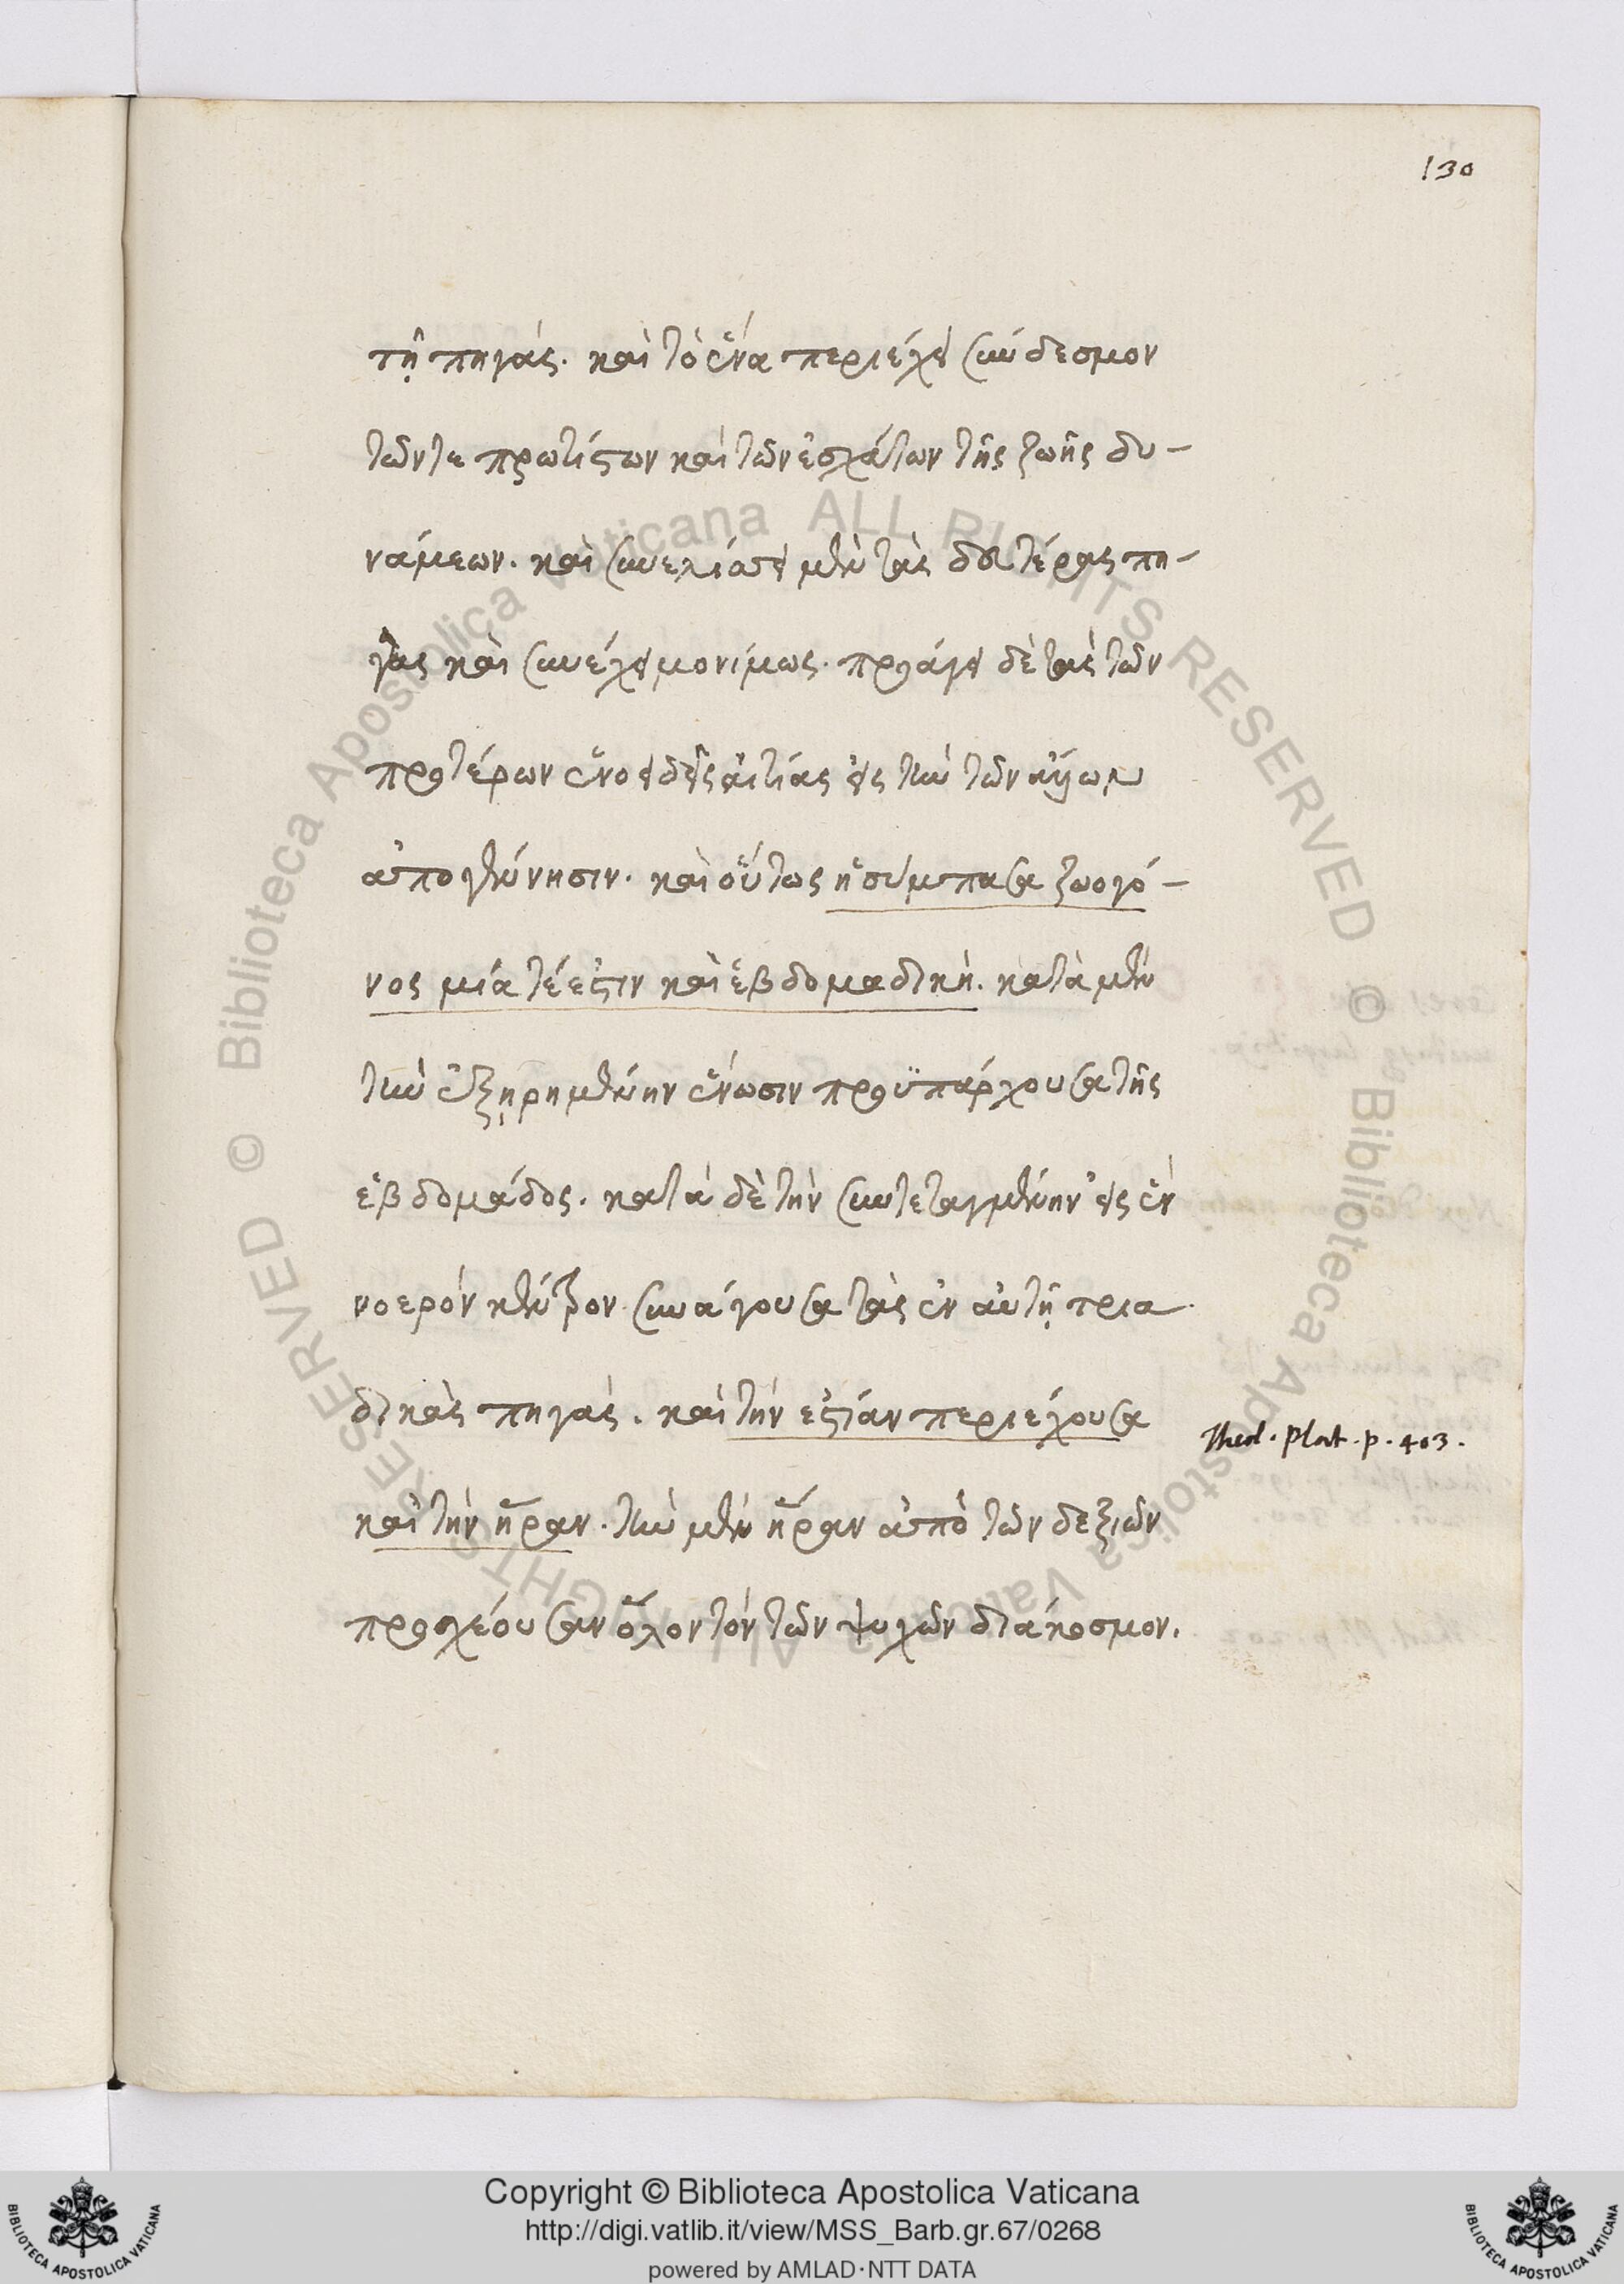 130
τῇ πηγάς. καὶ τὸ ἕνα περιέχει σύνδεσμον
τῶν τε πρωτίστων καὶ τῶν ἐσχάτων τῆς ζωῆς δυ-
νάμεων. καὶ συνελίσσει μὲν τὰς δευτέρας πη-
γὰς καὶ συνέχει μονίμως. προάγει δὲ τὰς τῶν
προτέρων ἑνοειδεῖς αἰτίας εἰς τὴν τῶν
ἀπογέννησιν. καὶ οὕτως ἡ σύμπασα ζωογό-
νος μία τέ ἐστιν καὶ ἑβδομαδική. κατὰ μὲν
τὴν ἐξῃρημένην ἕνωσιν προϋπάρχουσα τῆς
ἑβδομάδος. κατὰ δὲ τὴν συντεταγμένην εἰς ἓν
νοερὸν κέντρον συνάγουσα τὰς ἐν αὐτῇ τρια
δικὰς πηγάς. καὶ τὴν ἑστίαν περιέχουσα
Theol. Plat. p. 403.
καὶ τὴν ἥραν. τὴν μὲν ἥραν ἀπὸ τῶν δεξιῶν
προσχέουσαν ὅλον τὸν τῶν ψυχῶν διάκοσμον.
© Biblioteca Apostolica Vaticana ALL RIGHTS RESERVED
© Biblioteca Apostolica Vaticana ALL RIGHTS RESERVED
Copyright © Biblioteca Apostolica Vaticana
http://digi.vatlib.it/view/MSS_Barb.gr.67/0268
powered by AMLAD·NTT DATA
BIBLIOTECA APOSTOLICA VATICANA
BIBLIOTECA APOSTOLICA VATICANA